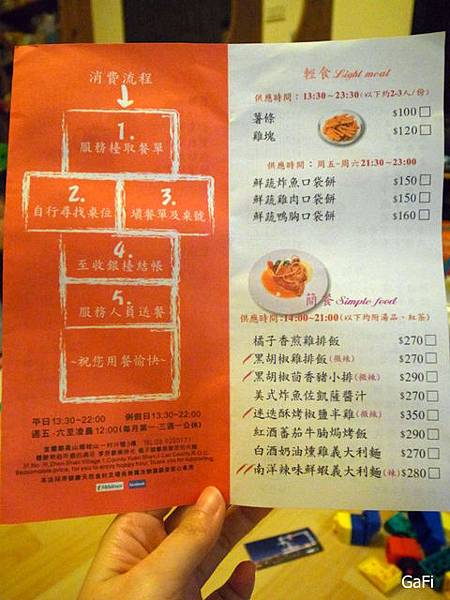 消費流程
1.
服務檯取餐單
2.
自行尋找桌位
3.
填餐單及桌號
4.
至收銀檯結帳
5.
服務人員送餐
~祝您用餐愉快~
平日13:30~22:00 例假日13:30~22:00
週五、六至凌晨12:00(每月第一三週一公休)
facebook
輕食 Light meal
供應時間：13:30~23:30(以下約2-3人/份)
薯條 $100
雞塊 $120
供應時間：周五~周六21:30~23:00
鮮蔬炸魚口袋餅 $150
鮮蔬雞肉口袋餅 $150
鮮蔬鴨胸口袋餅 $160
簡餐 Simple food
供應時間:14:00~21:00(以下均附湯品、紅茶)
橘子香煎雞排飯 $270
黑胡椒雞排飯(微辣) $270
黑胡椒茴香豬小排(微辣) $290
美式炸魚佐凱薩醬汁 $270
迷迭酥烤椒鹽半雞(微辣) $350
紅酒蕃茄牛腩焗烤飯 $290
白酒奶油燻雞義大利麵 $270
南洋辣味鮮蝦義大利麵(辣) $280
GaFi